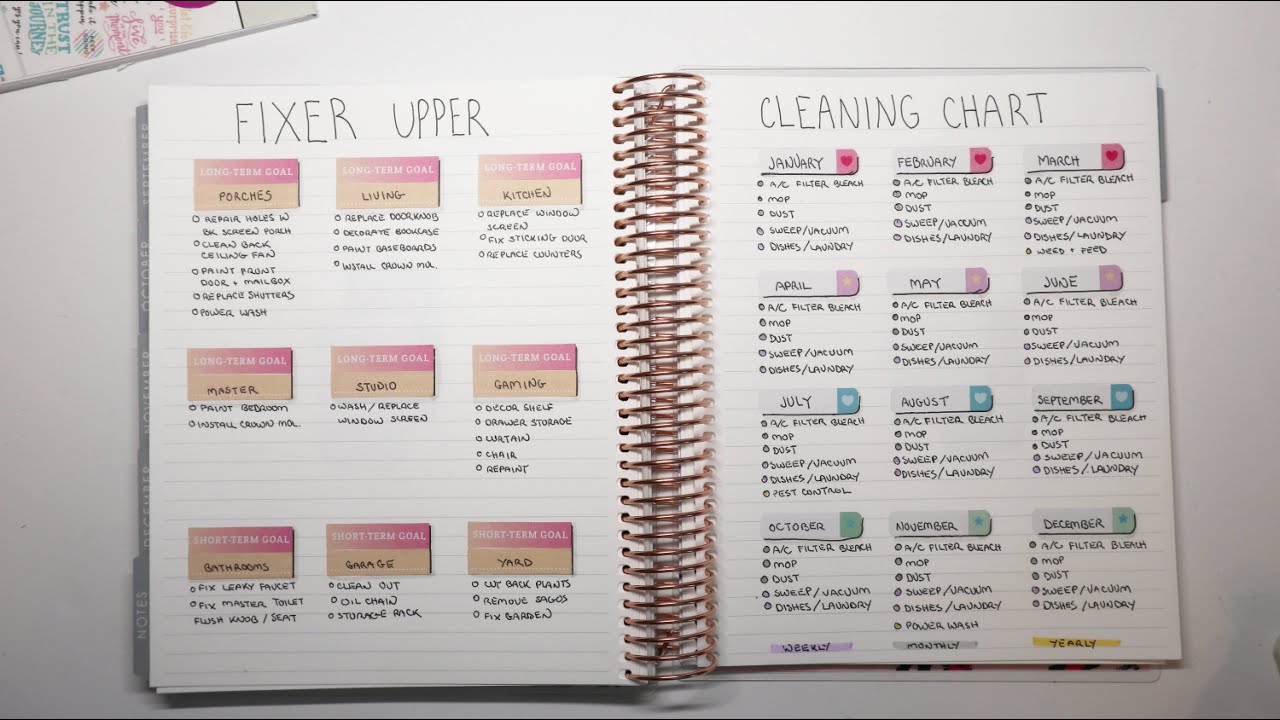 TRUST
IN THE
JOURNEY
SEPTEMBER
OCTOBER
NOVEMBER
DECEMBER
NOTES
FIXER UPPER
LONG-TERM GOAL
PORCHES
REPAIR HOLES IN
BK SCREEN PORCH
CLEAN BACK
CEILING FAN
PAINT FRONT
DOOR + MAILBOX
REPLACE SHUTTERS
POWER WASH
LONG-TERM GOAL
LIVING
REPLACE DOORKNOB
DECORATE BOOKCASE
PAINT BASEBOARDS
INSTALL CROWN MOL.
LONG-TERM GOAL
KITCHEN
REPLACE WINDOW
SCREEN
FIX STICKING DOOR
REPLACE COUNTERS
LONG-TERM GOAL
MASTER
PAINT BEDROOM
INSTALL CROWN MOL.
LONG-TERM GOAL
STUDIO
WASH/REPLACE
WINDOW SCREEN
LONG-TERM GOAL
GAMING
DECOR SHELF
DRAWER STORAGE
CURTAIN
CHAIR
REPAINT
SHORT-TERM GOAL
BATHROOMS
FIX LEAKY FAUCET
FIX MASTER TOILET
FLUSH KNOB/SEAT
SHORT-TERM GOAL
GARAGE
CLEAN OUT
OIL CHAIN
STORAGE RACK
SHORT-TERM GOAL
YARD
CUT BACK PLANTS
REMOVE SAGOS
FIX GARDEN
CLEANING CHART
JANUARY
A/C FILTER BLEACH
MOP
DUST
SWEEP/VACUUM
DISHES/LAUNDRY
FEBRUARY
A/C FILTER BLEACH
MOP
DUST
SWEEP/VACUUM
DISHES/LAUNDRY
MARCH
A/C FILTER BLEACH
MOP
DUST
SWEEP/VACUUM
DISHES/LAUNDRY
WEED + FEED
APRIL
A/C FILTER BLEACH
MOP
DUST
SWEEP/VACUUM
DISHES/LAUNDRY
MAY
A/C FILTER BLEACH
MOP
DUST
SWEEP/VACUUM
DISHES/LAUNDRY
JUNE
A/C FILTER BLEACH
MOP
DUST
SWEEP/VACUUM
DISHES/LAUNDRY
JULY
A/C FILTER BLEACH
MOP
DUST
SWEEP/VACUUM
DISHES/LAUNDRY
PEST CONTROL
AUGUST
A/C FILTER BLEACH
MOP
DUST
SWEEP/VACUUM
DISHES/LAUNDRY
SEPTEMBER
A/C FILTER BLEACH
MOP
DUST
SWEEP/VACUUM
DISHES/LAUNDRY
OCTOBER
A/C FILTER BLEACH
MOP
DUST
SWEEP/VACUUM
DISHES/LAUNDRY
NOVEMBER
A/C FILTER BLEACH
MOP
DUST
SWEEP/VACUUM
DISHES/LAUNDRY
POWER WASH
DECEMBER
A/C FILTER BLEACH
MOP
DUST
SWEEP/VACUUM
DISHES/LAUNDRY
WEEKLY
MONTHLY
YEARLY